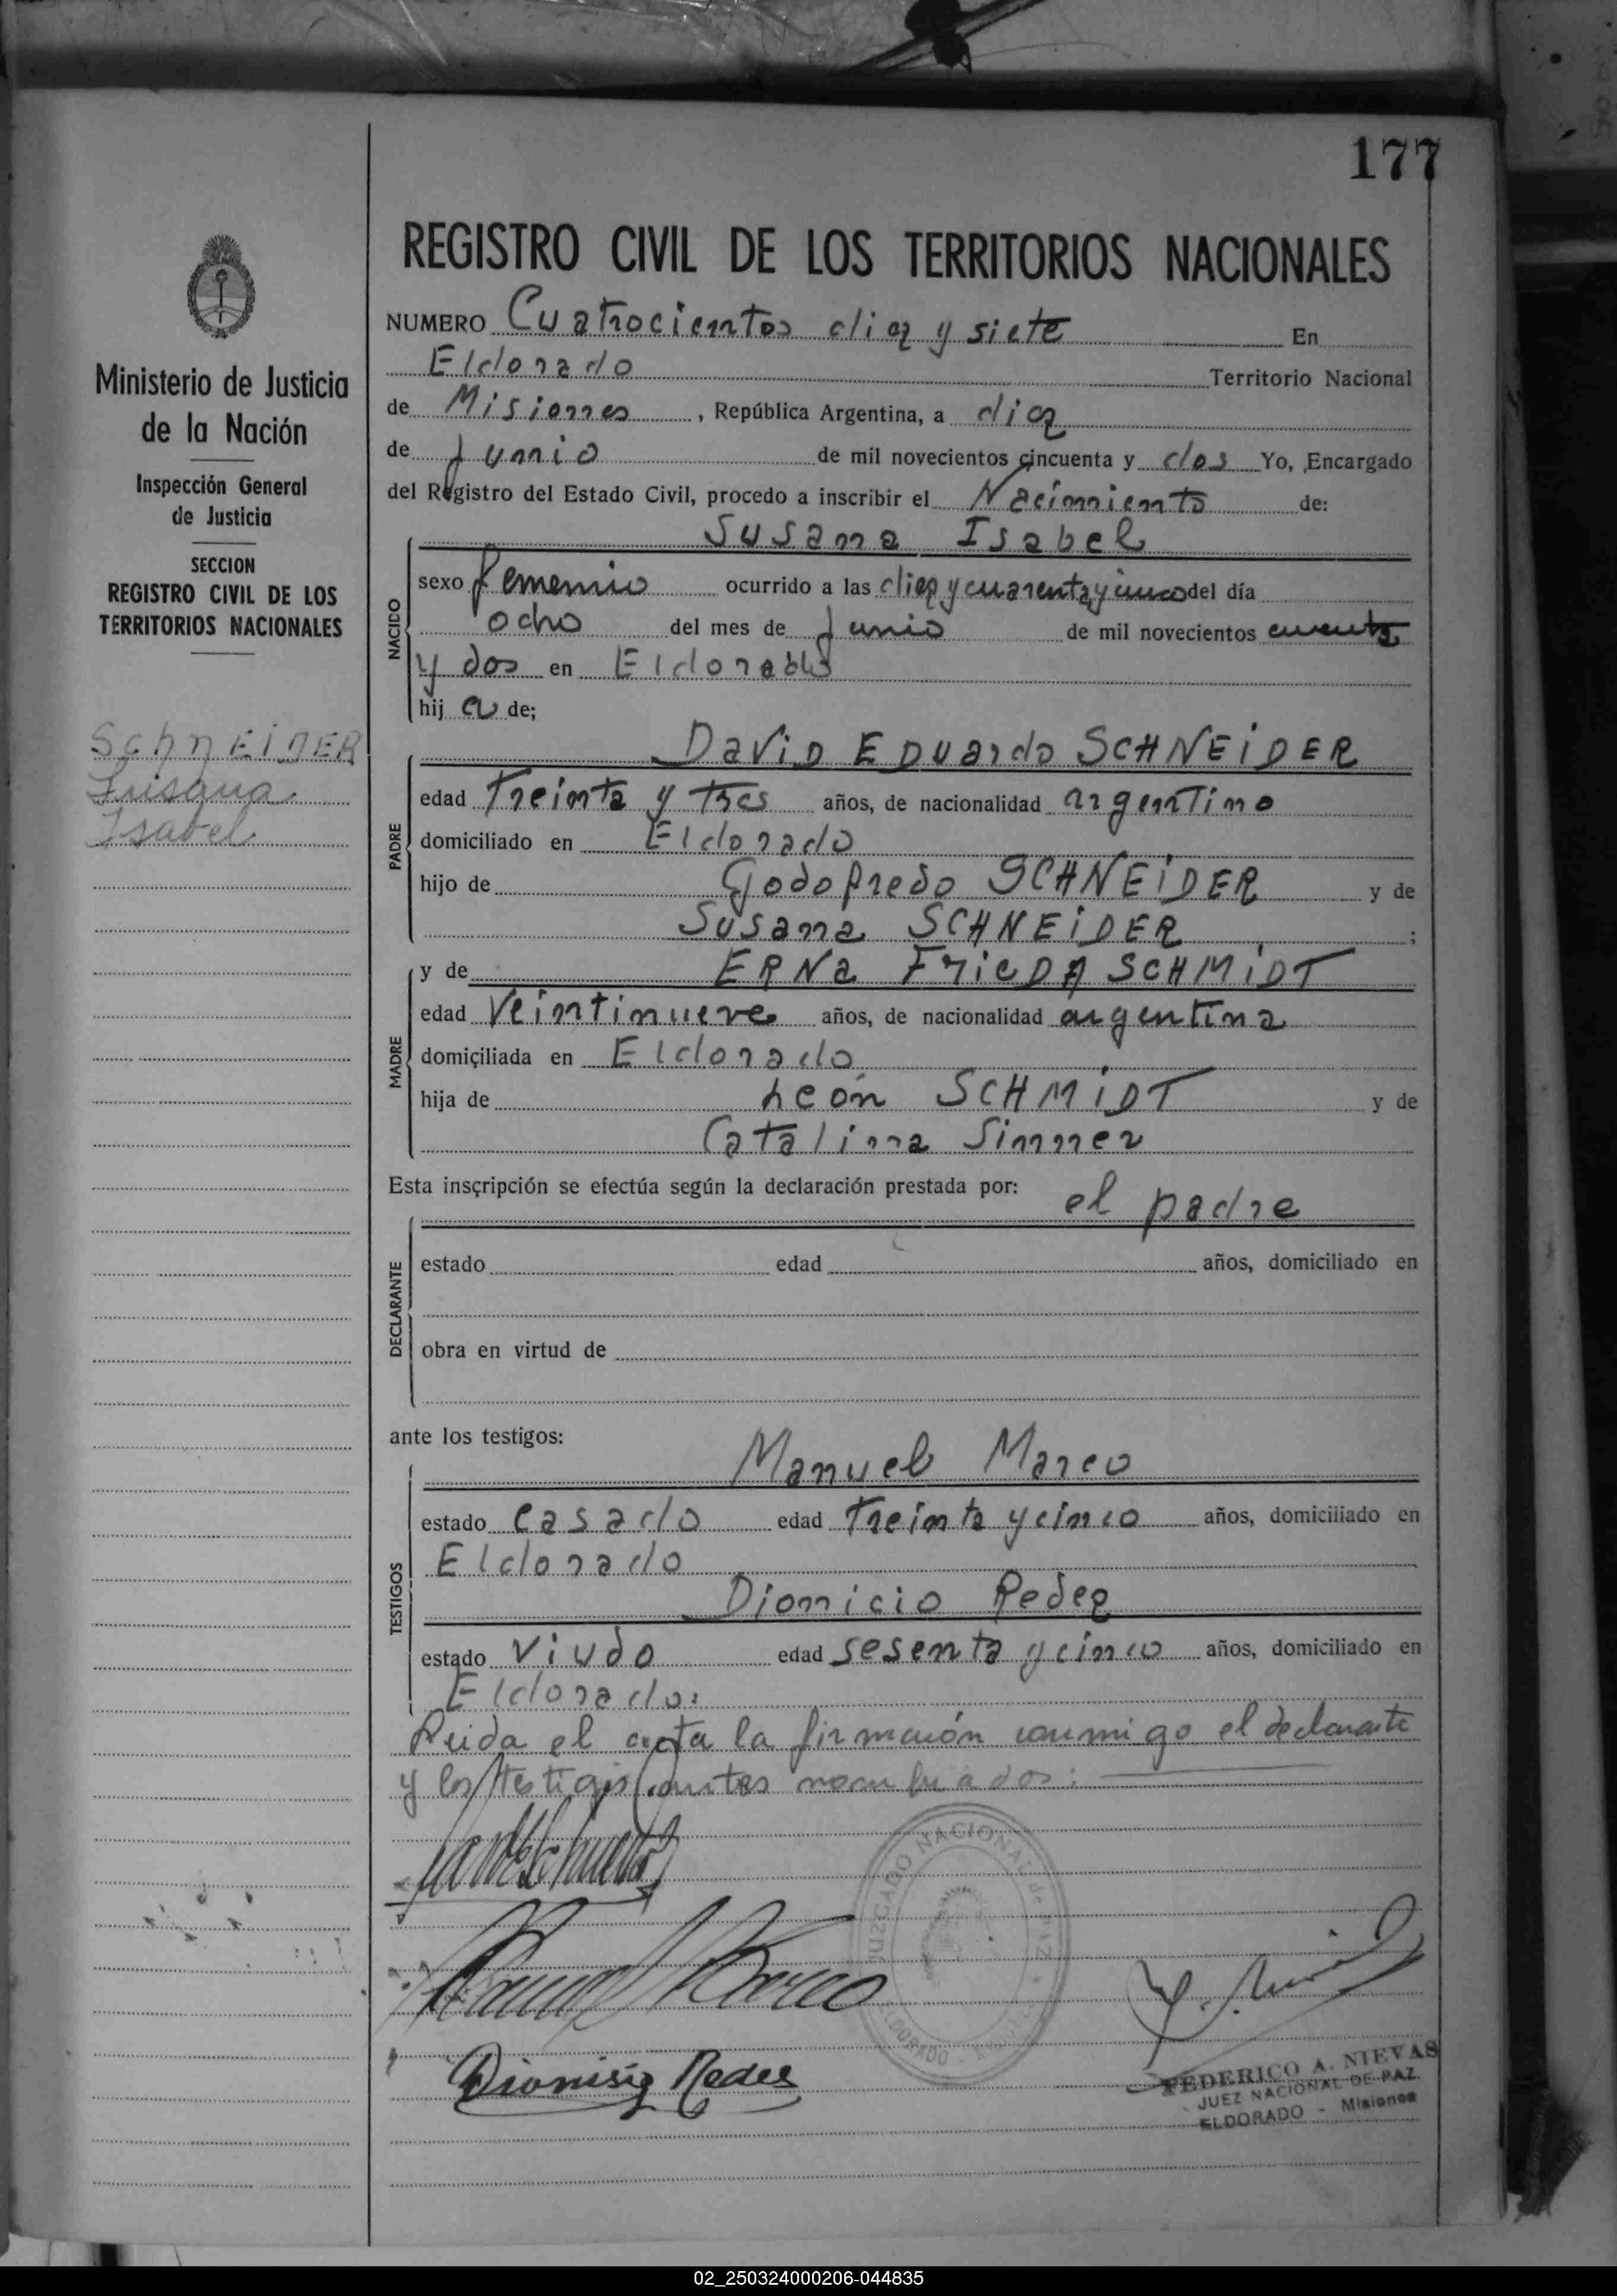 177
REGISTRO CIVIL DE LOS TERRITORIOS NACIONALES
Ministerio de Justicia
de la Nación
Inspección General
de Justicia
SECCION
REGISTRO CIVIL DE LOS
TERRITORIOS NACIONALES
SCHNEIDER
Susana
Isabel
NUMERO Cuatrocientos diez y siete En
Eldorado Territorio Nacional
de Misiones, República Argentina, a diez
de Junio de mil novecientos cincuenta y dos Yo, Encargado
del Registro del Estado Civil, procedo a inscribir el Nacimiento de:
NACIDO
Susana Isabel
sexo femenino ocurrido a las diez y cuarenta y cinco del día
ocho del mes de Junio de mil novecientos
y dos en Eldorado
hij a de;
PADRE
DaviD EDuardo SCHNEiDER
edad Treinta y tres años, de nacionalidad argentino
domiciliado en Eldorado
hijo de Godofredo SCHNEiDER y de
Susana SCHNEiDER ;
MADRE
y de ERNa FrieDA SCHMiDT
edad Veintinueve años, de nacionalidad argentina
domiciliada en Eldorado
hija de León SCHMiDT y de
Catalina Simner
Esta inscripción se efectúa según la declaración prestada por: el padre
DECLARANTE
estado edad años, domiciliado en
obra en virtud de
ante los testigos:
TESTIGOS
Manuel Marco
estado casado edad Treinta y cinco años, domiciliado en
Eldorado
Dionicio Redez
estado Viudo edad sesenta y cinco años, domiciliado en
Eldorado:
Leida el acta la firmaron conmigo el declarante
y los testigos antes nombrados:
JUZGADO NACIONAL de PAZ
ELDORADO
Manuel Marco
Dionisio Redes
FEDERICO A. NIEVAS
JUEZ NACIONAL DE PAZ
ELDORADO - Misiones
02_250324000206-044835